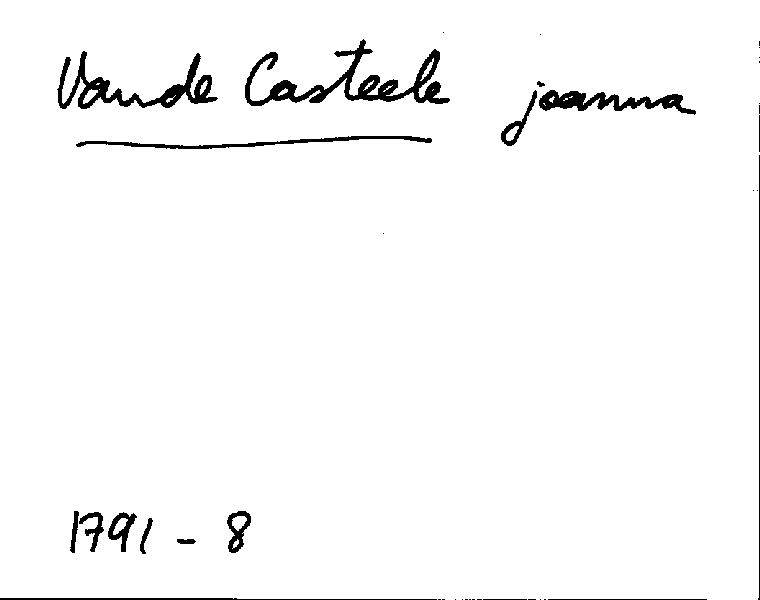 Vande Casteele joanna
1791 - 8